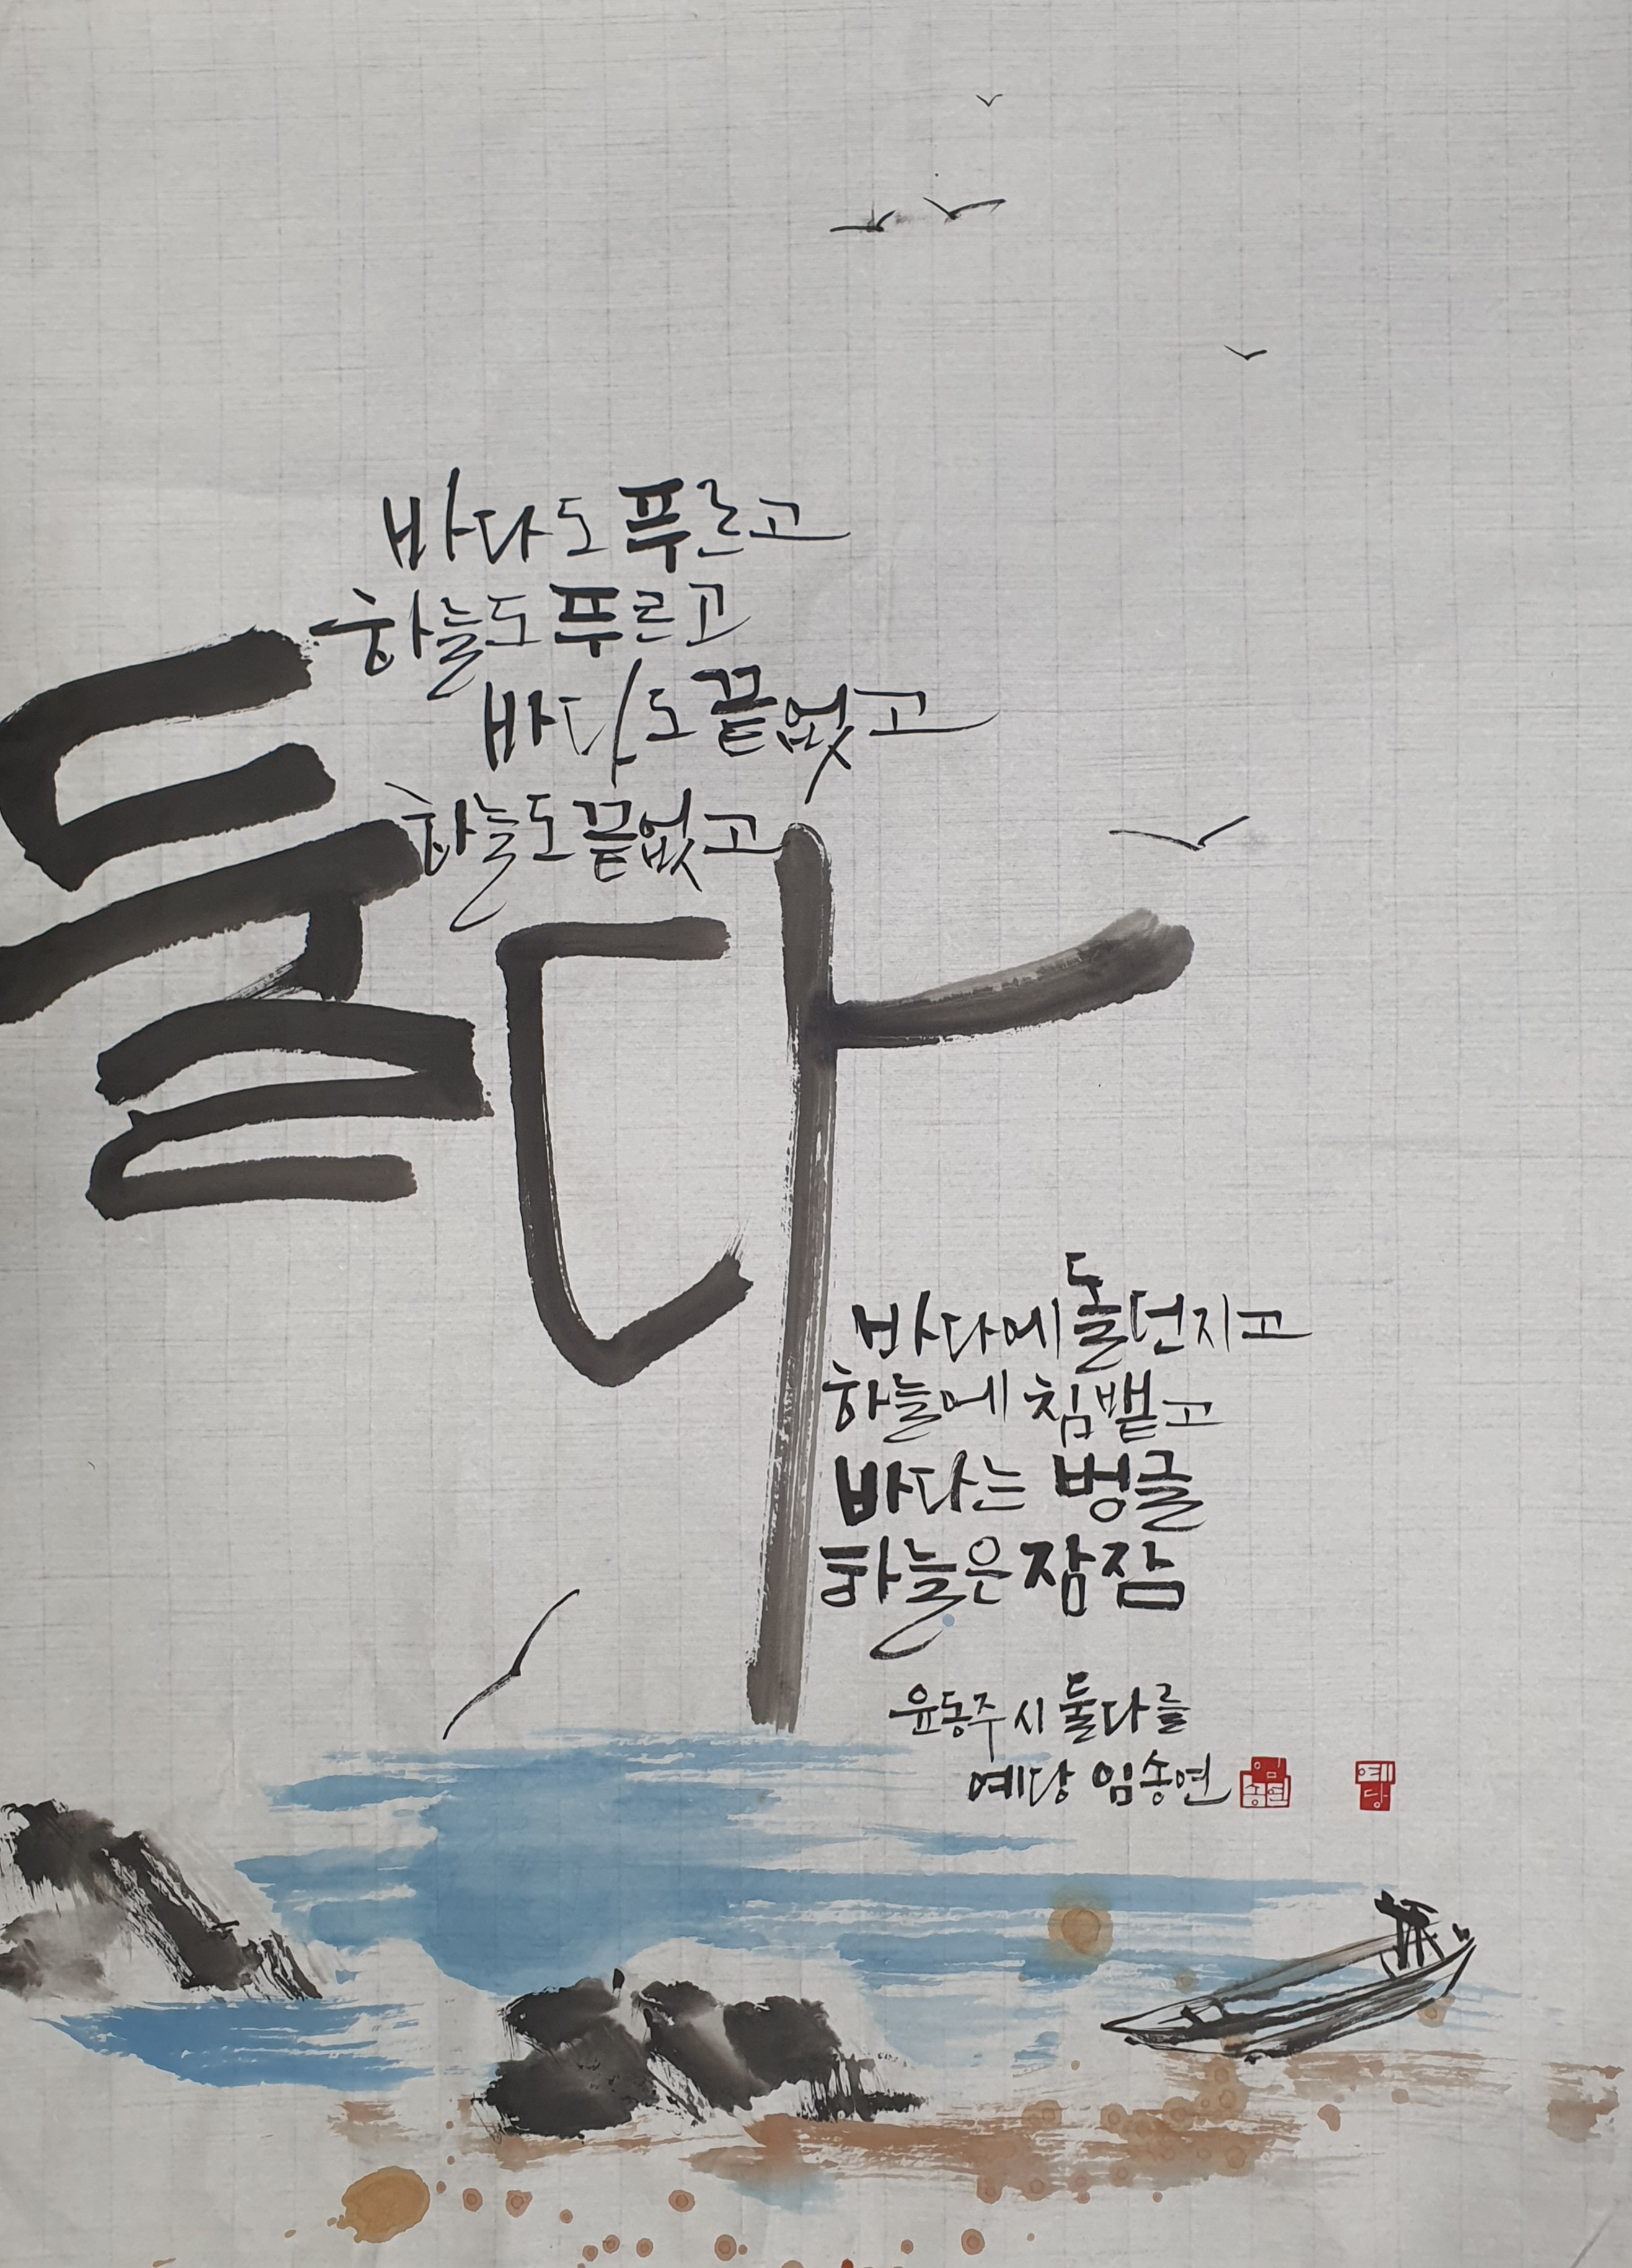 바다도 푸르고
하늘도 푸르고
바다도 끝없고
하늘도 끝없고
둘다
바다에 돌던지고
하늘에 침뱉고
바다는 벙글
하늘은 잠잠
윤동주 시 둘다를
예당 임송연
임송연
예당